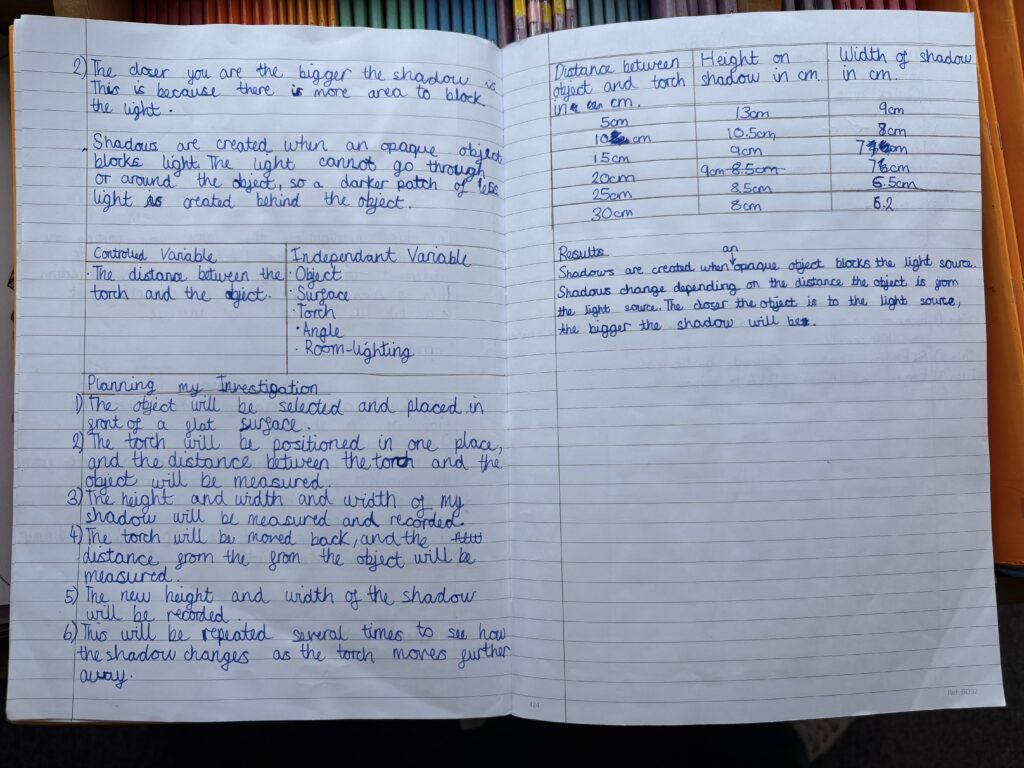 2) The closer you are the bigger the shadow is.
This is because there is more area to block
the light.
Shadows are created when an opaque object
blocks light. The light cannot go through
or around the object, so a darker patch of less
light is created behind the object.
Controlled Variable
Independant Variable
· The distance between the
torch and the object.
· Object
· Surface
· Torch
· Angle
· Room-lighting
Planning my Investigation
1) The object will be selected and placed in
front of a flat surface.
2) The torch will be positioned in one place,
and the distance between the torch and the
object will be measured.
3) The height and width and width of my
shadow will be measured and recorded.
4) The torch will be moved back, and the
distance from the from the object will be
measured.
5) The new height and width of the shadow
will be recorded.
6) This will be repeated several times to see how
the shadow changes as the torch moves further
away.
424
Distance between
object and torch
in cm.
Height on
shadow in cm.
Width of shadow
in cm.
5cm 13cm 9cm
10cm 10.5cm 8cm
15cm 9cm 7 cm
20cm 9cm 8.5cm 7cm
25cm 8.5cm 6.5cm
30cm 8cm 6.2
Results
Shadows are created when an opaque object blocks the light source.
Shadows change depending on the distance the object is from
the light source. The closer the object is to the light source,
the bigger the shadow will be.
Ref: BD32